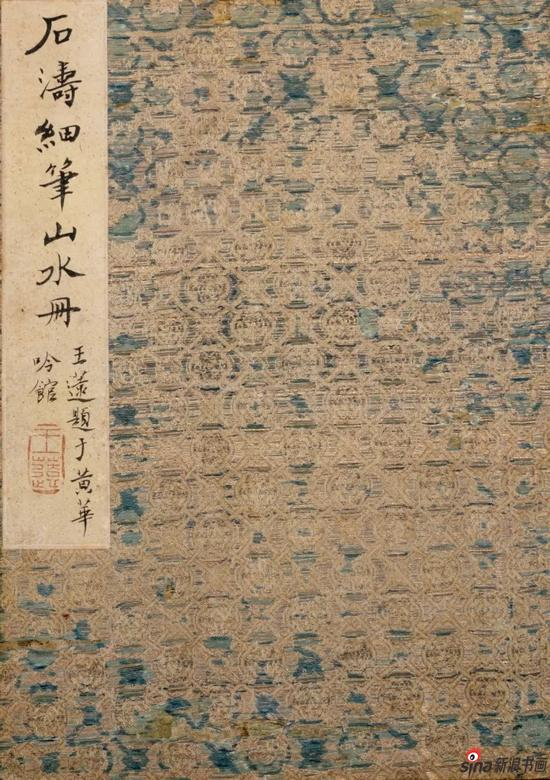 石濤細筆山水冊
王薳題于黃華
吟館
王薳
sina新浪书画